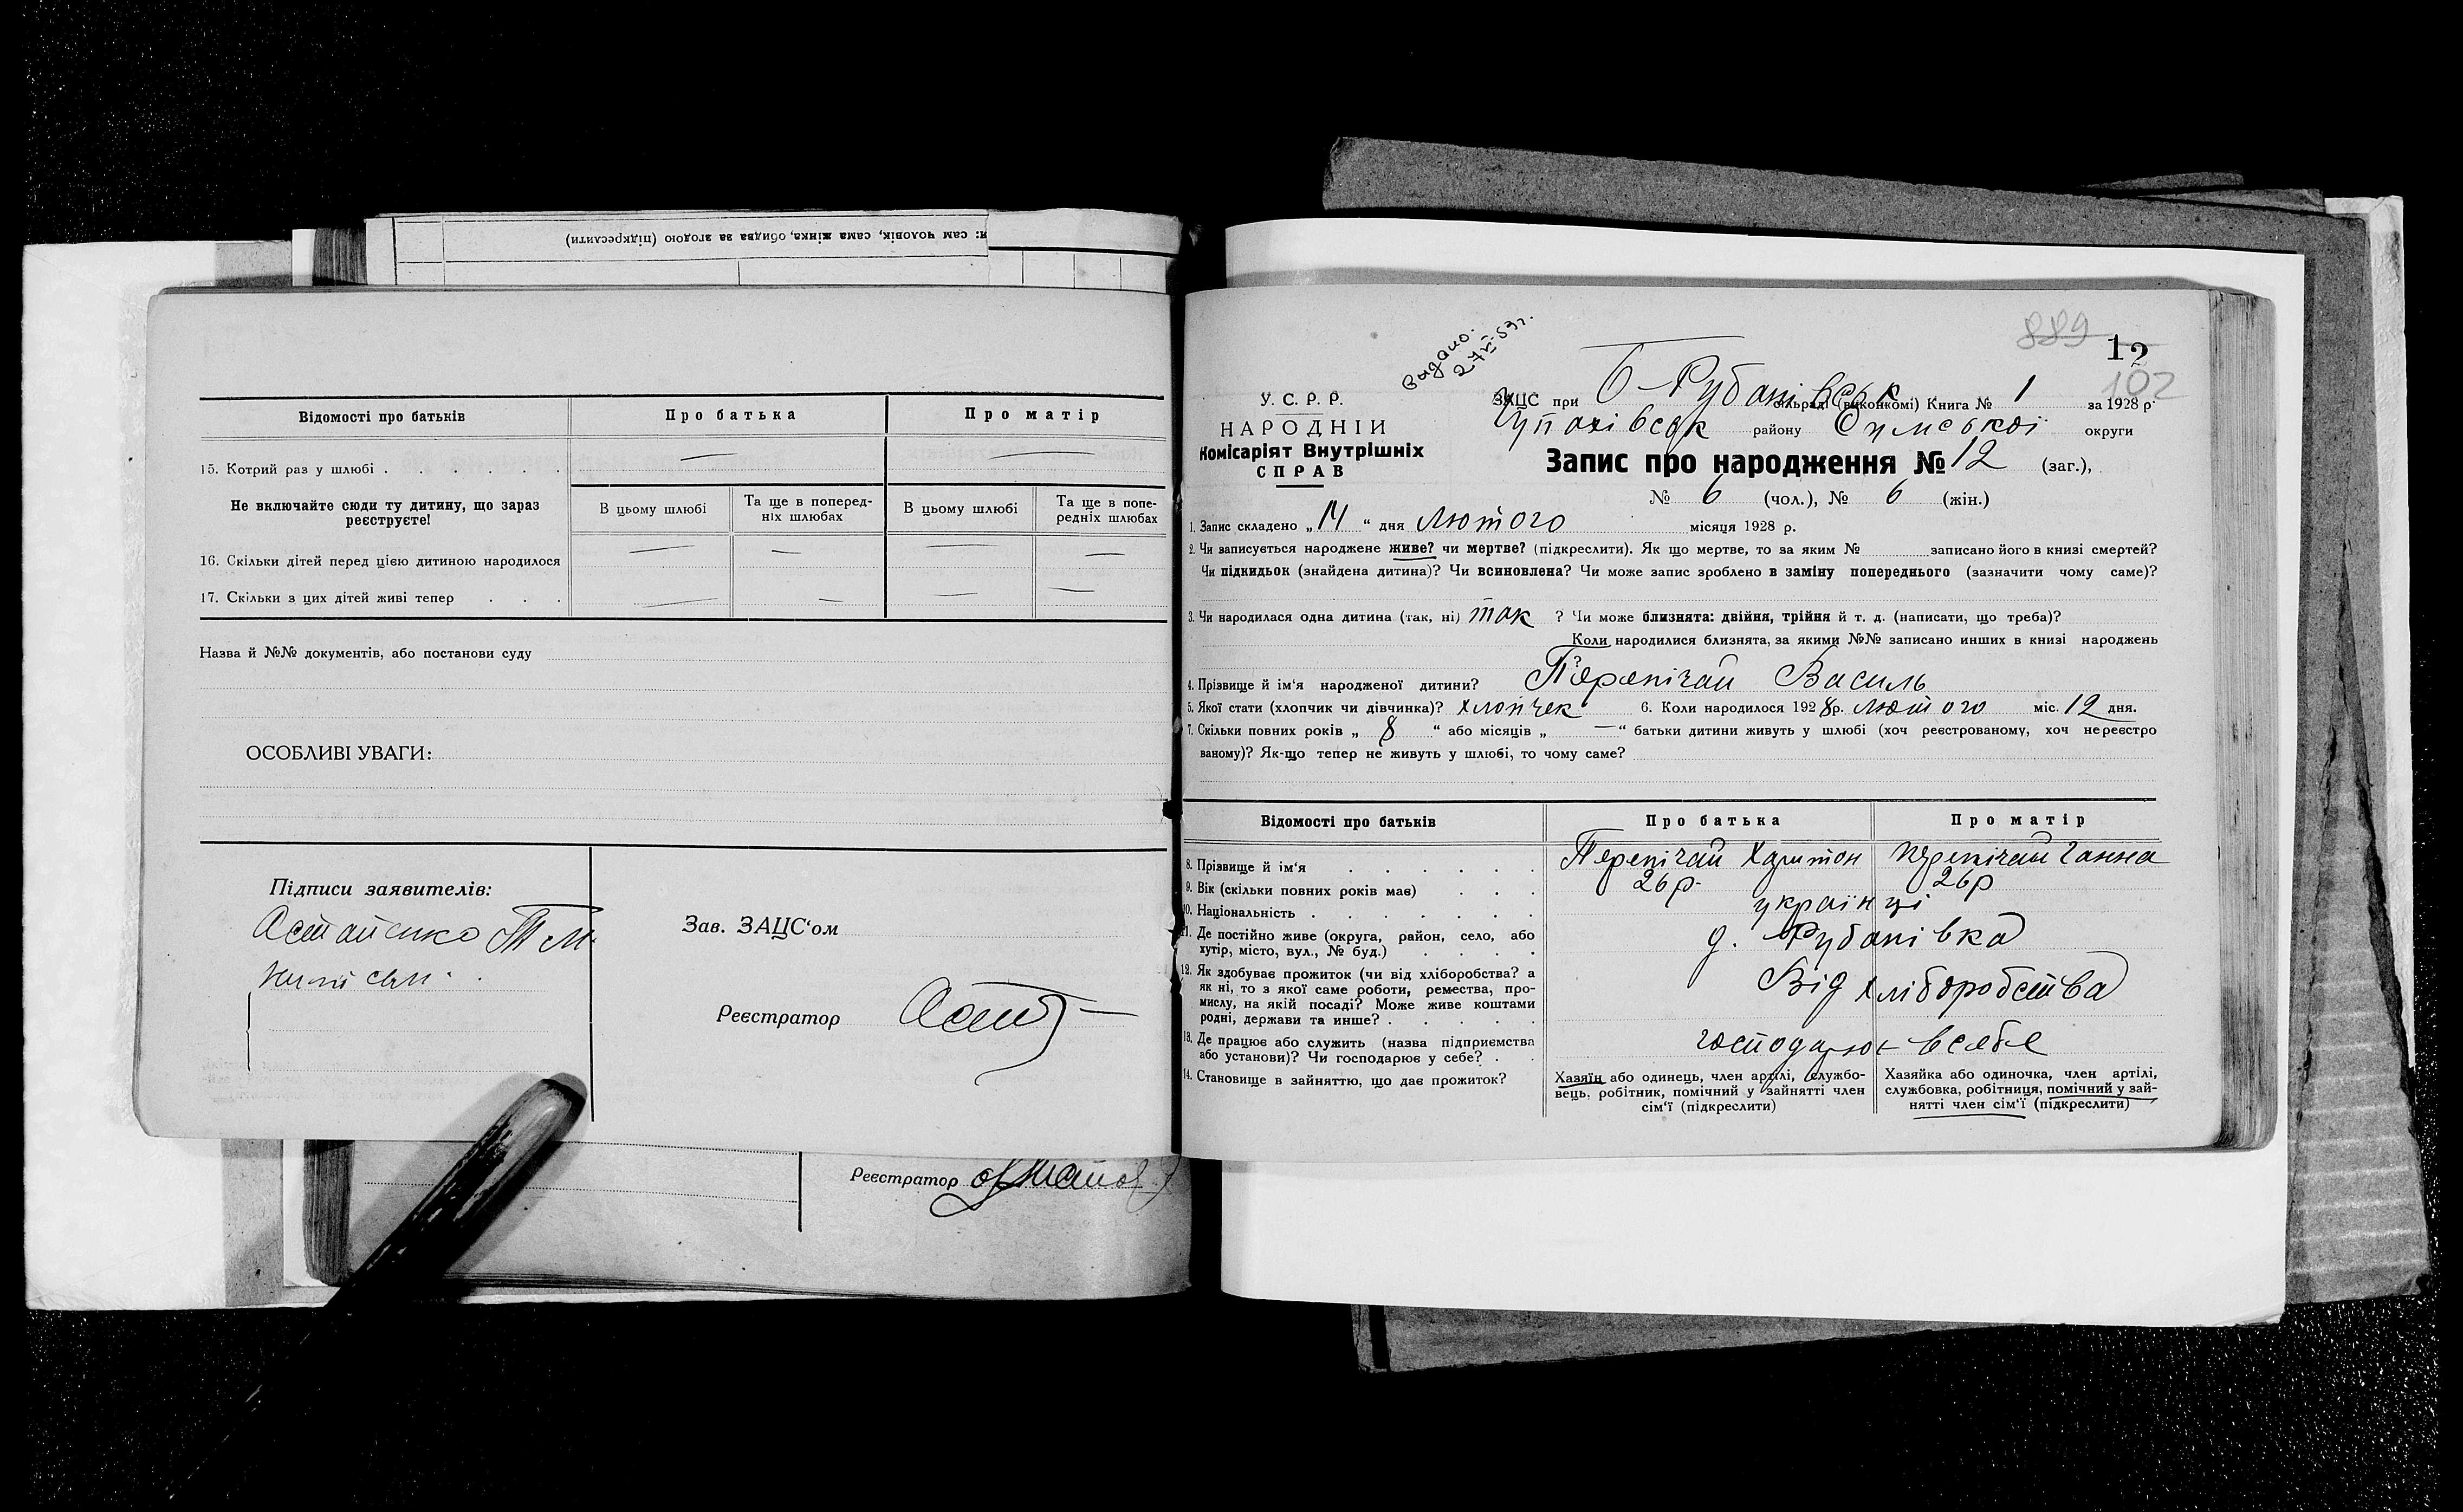 и: сам чоловік, сама жінка, обидва за згодою (підкреслити)
Відомості про батьків Про батька Про матір
15. Котрий раз у шлюбі . . . . . — —
Не включайте сюди ту дитину, що зараз реєструєте!
В цьому шлюбі Та ще в поперед- В цьому шлюбі Та ще в попе-
ніх шлюбах редніх шлюбах
16. Скільки дітей перед цією дитиною народилося — — — —
17. Скільки з цих дітей живі тепер . . . — — — —
Назва й №№ документів, або постанови суду
ОСОБЛИВІ УВАГИ:
Підписи заявителів:
Зав. ЗАЦС'ом
Реєстратор
Реєстратор
889
12
102
Видано.
У. С. Р. Р.
НАРОДНІЙ
Комісаріят Внутрішніх
СПРАВ
ЗАЦС при Б-Рубанівськ сільраді (виконкомі) Книга № 1 за 1928 р.
району Сумської округи
Запис про народження № 12 (заг.),
№ 6 (чол.), № 6 (жін.)
1. Запис складено „14“ дня Лютого місяця 1928 р.
2. Чи записується народжене живе? чи мертве? (підкреслити). Як що мертве, то за яким № записано його в книзі смертей?
Чи підкидьок (знайдена дитина)? Чи всиновлена? Чи може запис зроблено в заміну попереднього (зазначити чому саме)?
3. Чи народилася одна дитина (так, ні) так ? Чи може близнята: двійня, трійня й т. д. (написати, що треба)?
Коли народилися близнята, за якими №№ записано инших в книзі народжень
?
4. Прізвище й ім'я народженої дитини? Перепічай Василь
5. Якої стати (хлопчик чи дівчинка)? хлопчек 6. Коли народилося 1928р. лютого міс. 12 дня.
7. Скільки повних років „ 8 “ або місяців „ — “ батьки дитини живуть у шлюбі (хоч реєстрованому, хоч нереєстро
ваному)? Як-що тепер не живуть у шлюбі, то чому саме?
Відомості про батьків Про батька Про матір
8. Прізвище й ім'я . . . . . . Перепічай Харитон Перепічай Ганна
9. Вік (скільки повних років має) . . . 26 р. 26 р
10. Національність . . . . . . . українці
11. Де постійно живе (округа, район, село, або
хутір, місто, вул., № буд.) . . . . Рубанівка
12. Як здобуває прожиток (чи від хліборобства? а
як ні, то з якої саме роботи, ремества, про-
мислу, на якій посаді? Може живе коштами
родні, держави та инше? . . . . . Від хліборобства
13. Де працює або служить (назва підприємства
або установи)? Чи господарює у себе? . . господарює в себе
14. Становище в зайняттю, що дає прожиток?
Хазяїн або одинець, член артілі, службо-
вець, робітник, помічний у зайнятті член
сім'ї (підкреслити)
Хазяйка або одиночка, член артілі,
службовка, робітниця, помічний у зай-
нятті член сім'ї (підкреслити)